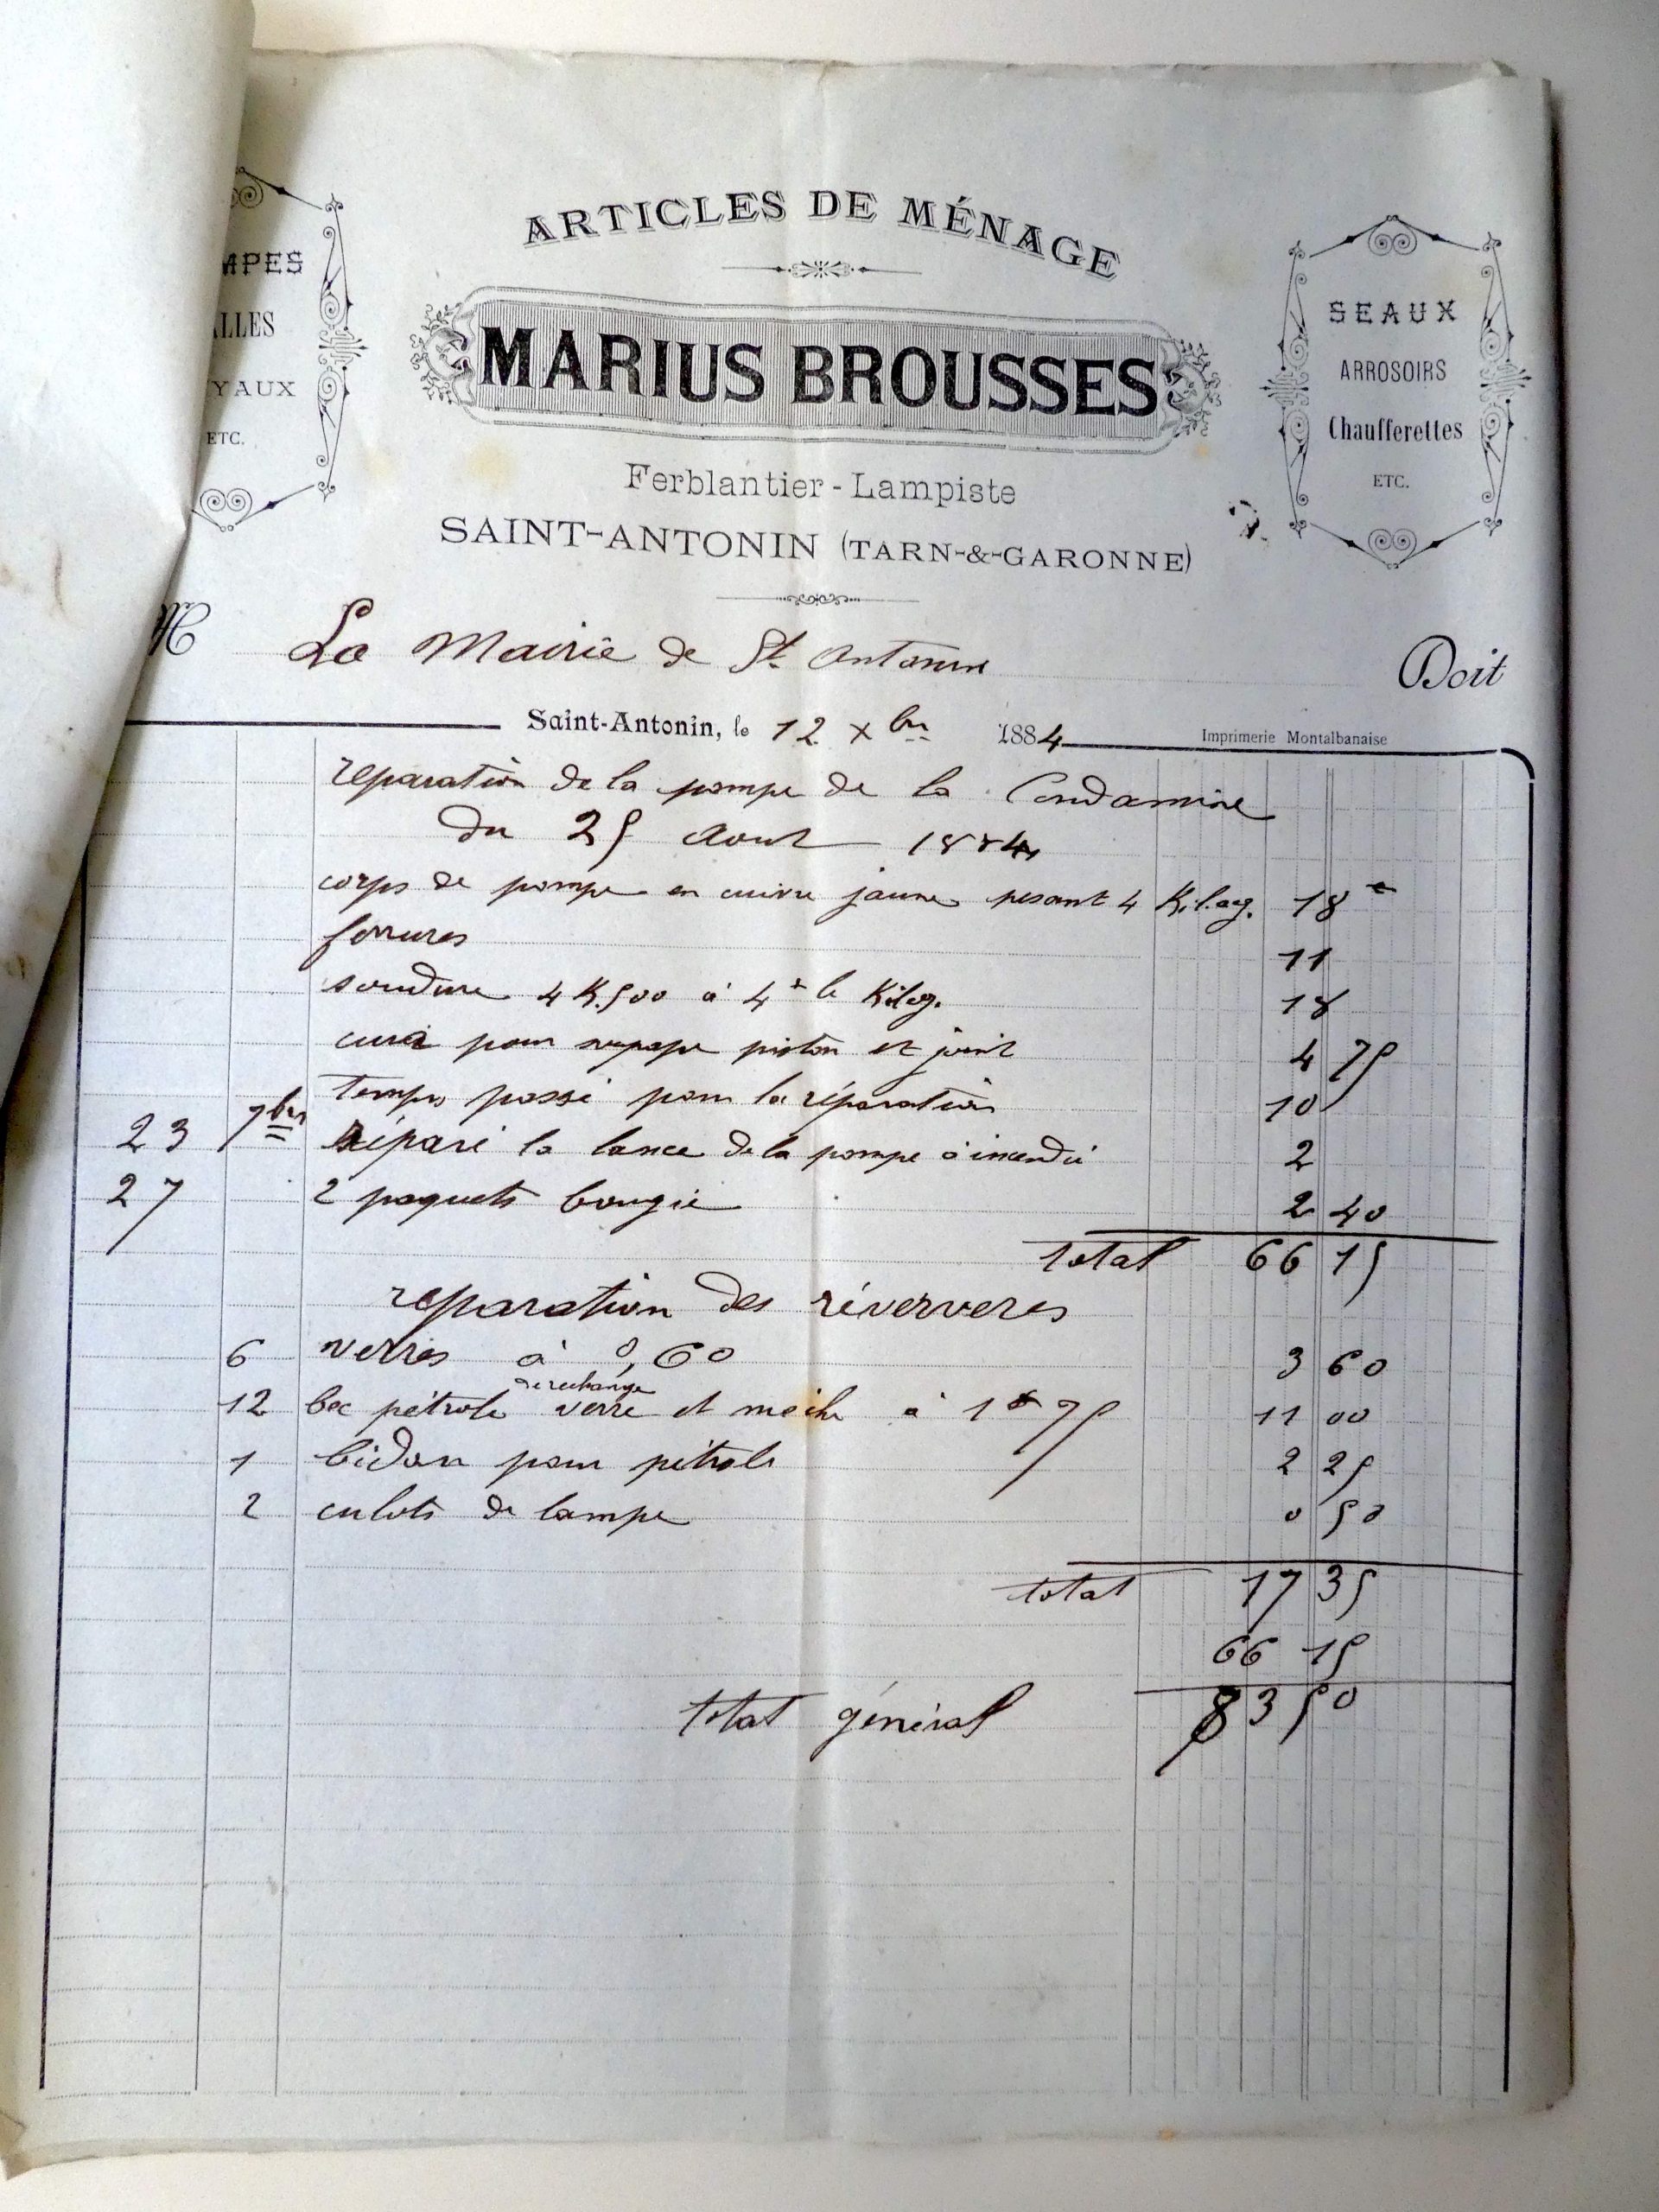 ARTICLES DE MÉNAGE
MPES
LLES
YAUX
ETC.
MARIUS BROUSSES
SEAUX
ARROSOIRS
Chaufferettes
ETC.
Ferblantier - Lampiste
SAINT-ANTONIN (TARN-&-GARONNE)
M La Mairie de St Antonin Doit
Saint-Antonin, le 12 Xbre 1884
Imprimerie Montalbanaise
reparation de la pompe de la Condamine
du 25 Aout 1884
corps de pompe en cuivre jaune pesant 4 Kilog. 18
ferrures 11
soudure 4 K.500 à 4f le Kilog. 18
cuir pour supape piston et joint 4 75
temps passé pour la réparation 10
23 7bre réparé la lance de la pompe à incendie 2
27 2 paquets bougie 2 40
total 66 15
reparation des réververes
6 verres à 0,60 3 60
de rechange
12 bec pétrole verre et meche à 1f 75 11 00
1 bidon pour pétrole 2 25
2 culots de lampe 0 50
total 17 35
66 15
total général 83 50